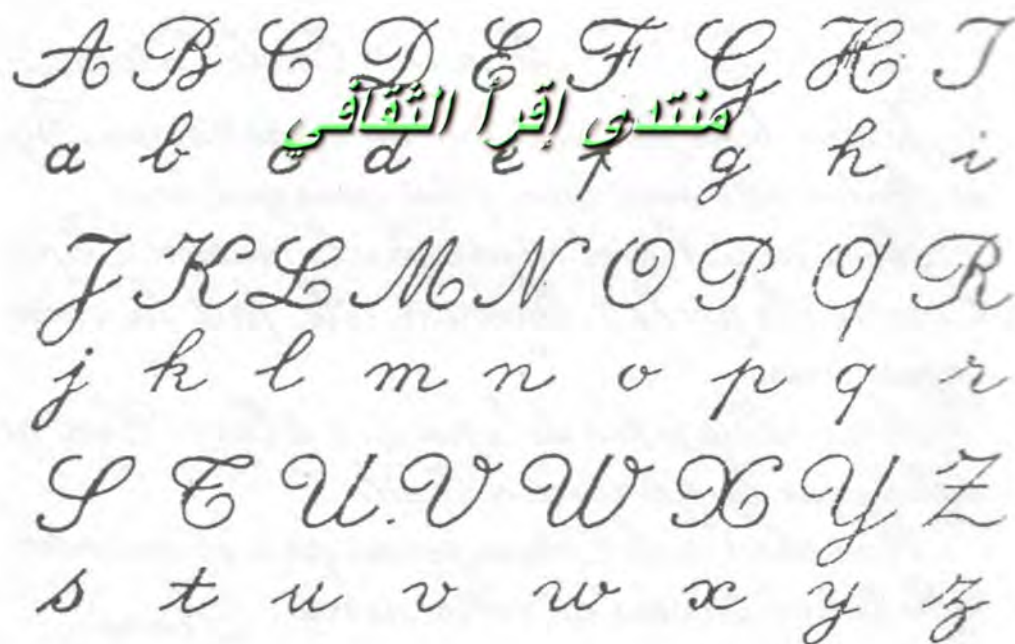 A B C D E F G H I
منتدى إقرأ الثقافي
a b c d e f g h i
J K L M N O P Q R
j k l m n o p q r
S T U V W X Y Z
s t u v w x y z